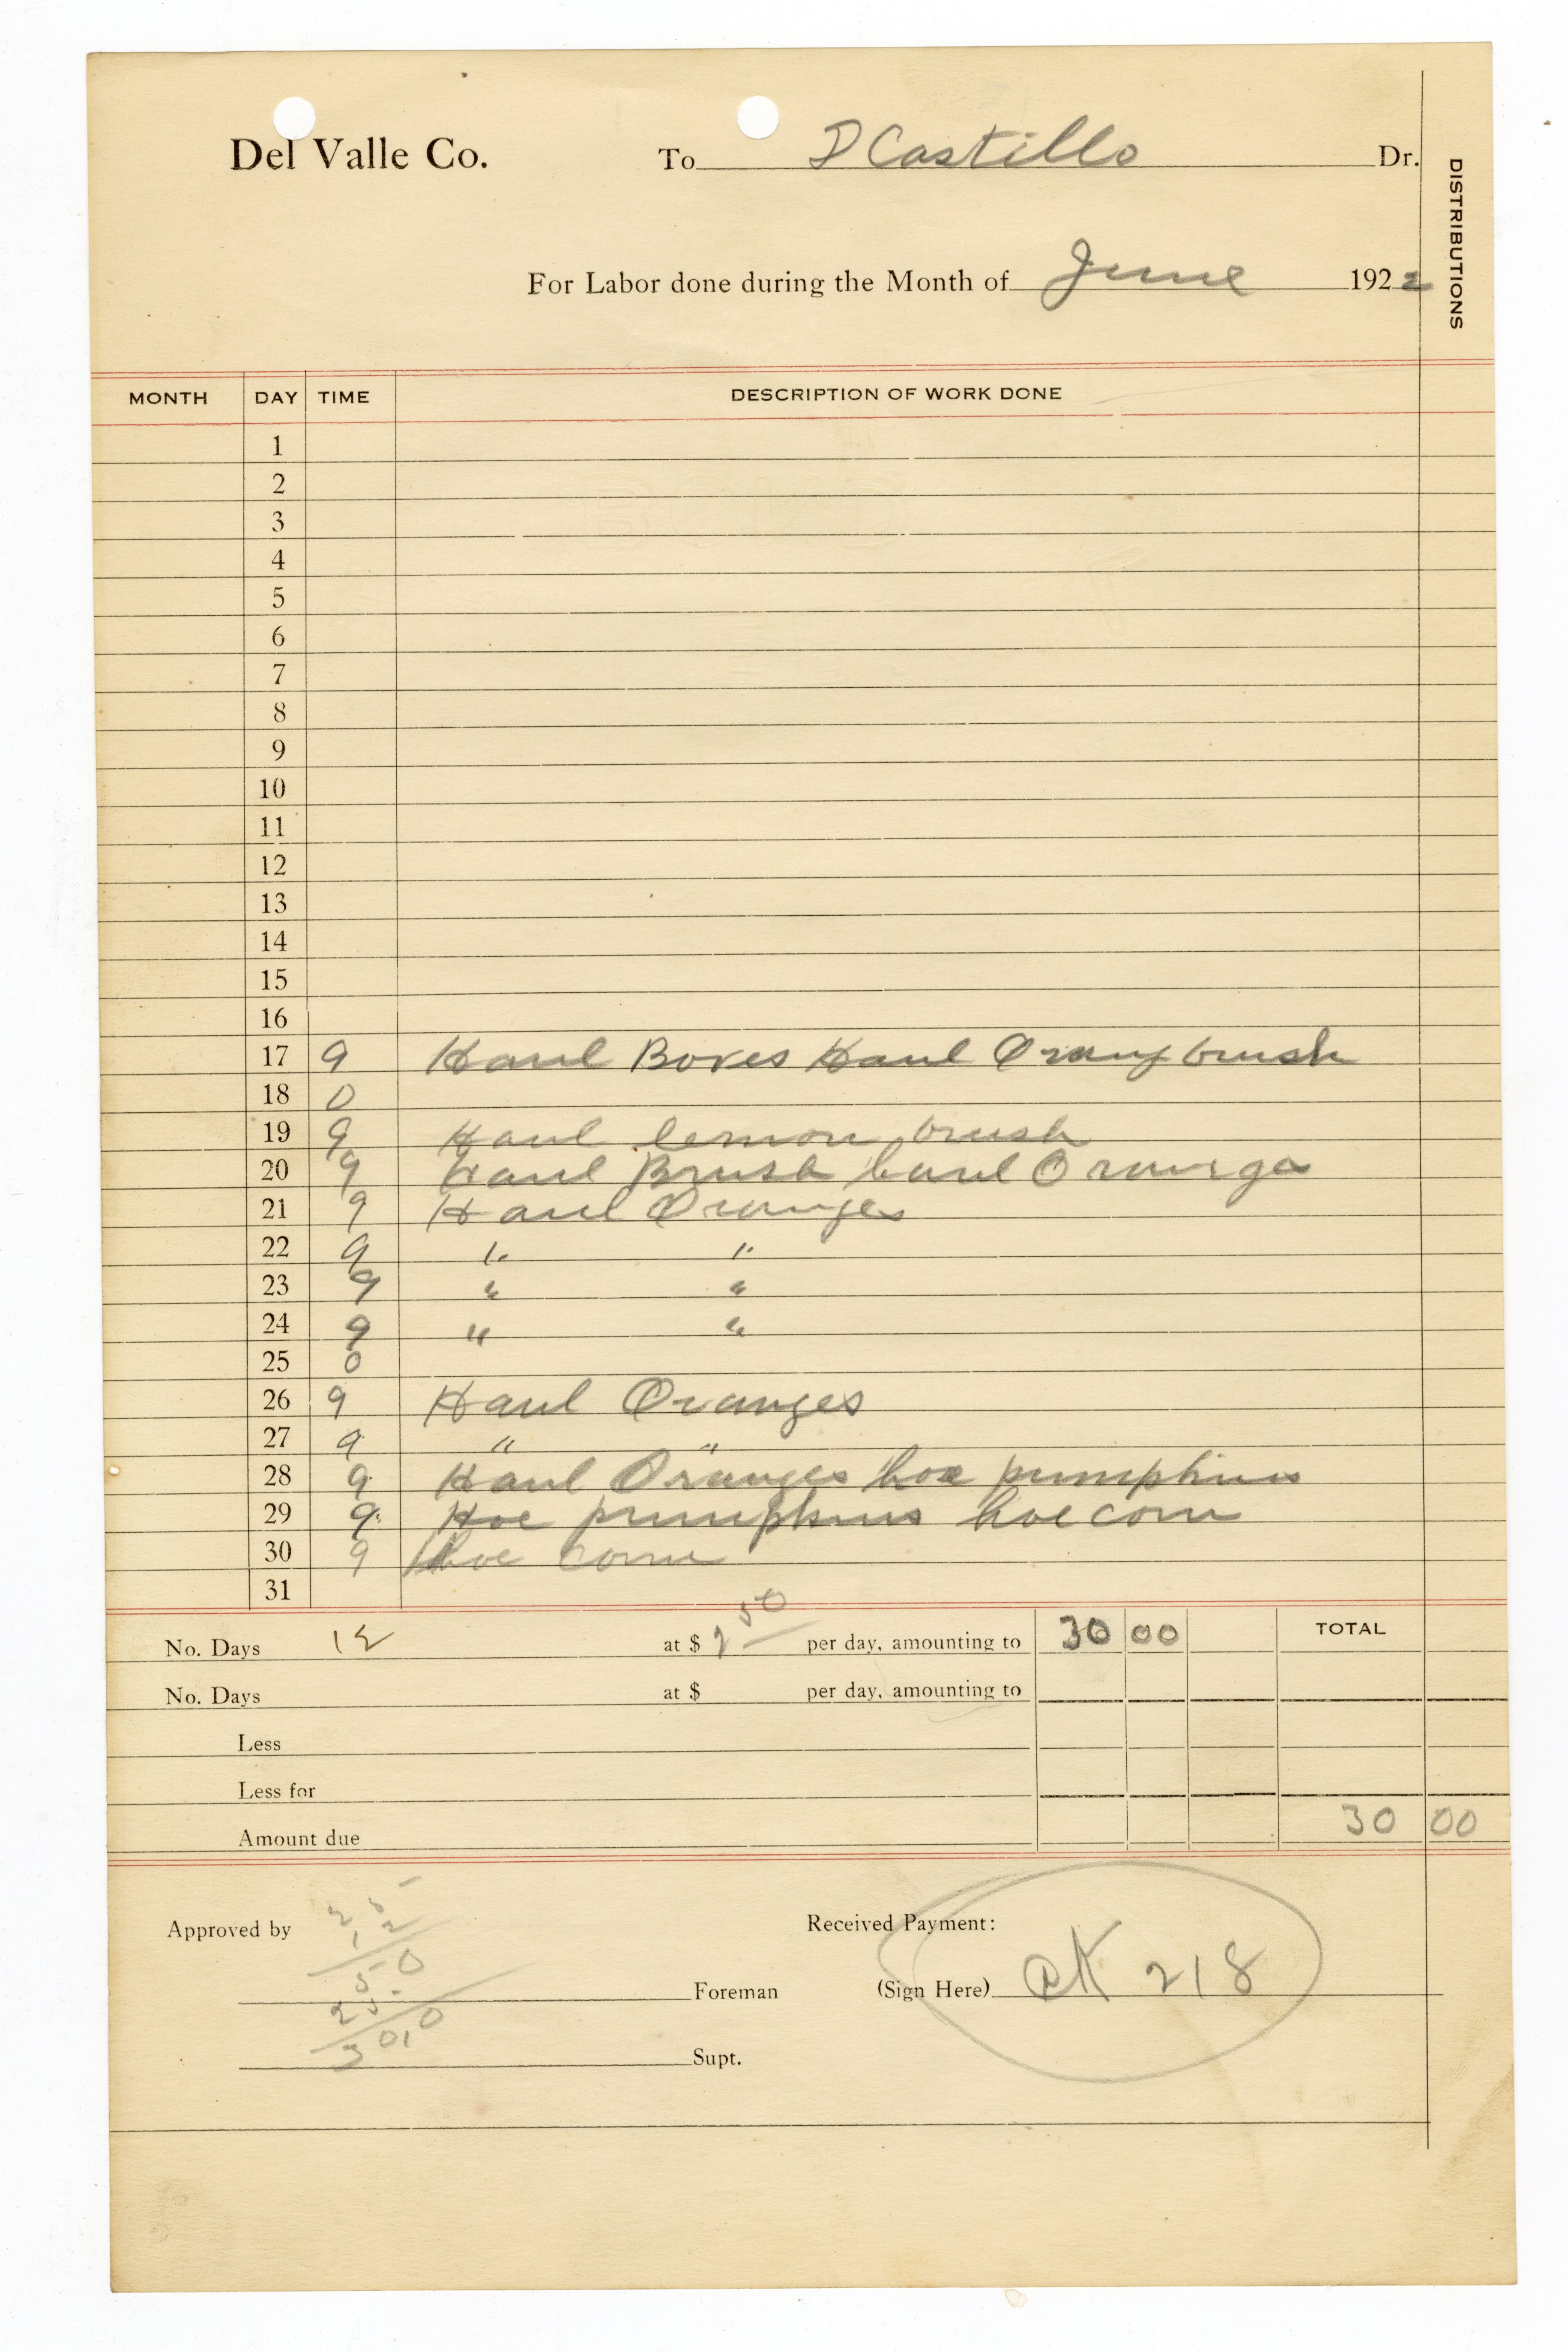 Del Valle Co. To D Castillo Dr.
DISTRIBUTIONS
For Labor done during the Month of June 1922
MONTH DAY TIME DESCRIPTION OF WORK DONE
1
2
3
4
5
6
7
8
9
10
11
12
13
14
15
16
17 9 Haul Boxes Haul Orang brush
18 0
19 9 Haul lemon brush
20 9 Haul Brush haul Oranges
21 9 Haul Oranges
22 9 " "
23 9 " "
24 9 " "
25 0
26 9 Haul Oranges
27 9 " "
28 9 Haul Oranges hoe pumpkins
29 9 Hoe pumpkins hoe corn
30 9 hoe corn
31
No. Days 12 at $ 2 50 per day, amounting to 30 00 TOTAL
No. Days at $ per day, amounting to
Less
Less for
Amount due 30 00
Approved by Received Payment:
Foreman (Sign Here) CK 218
Supt.
2 5
1 2
5 0
2 5
3 0 0